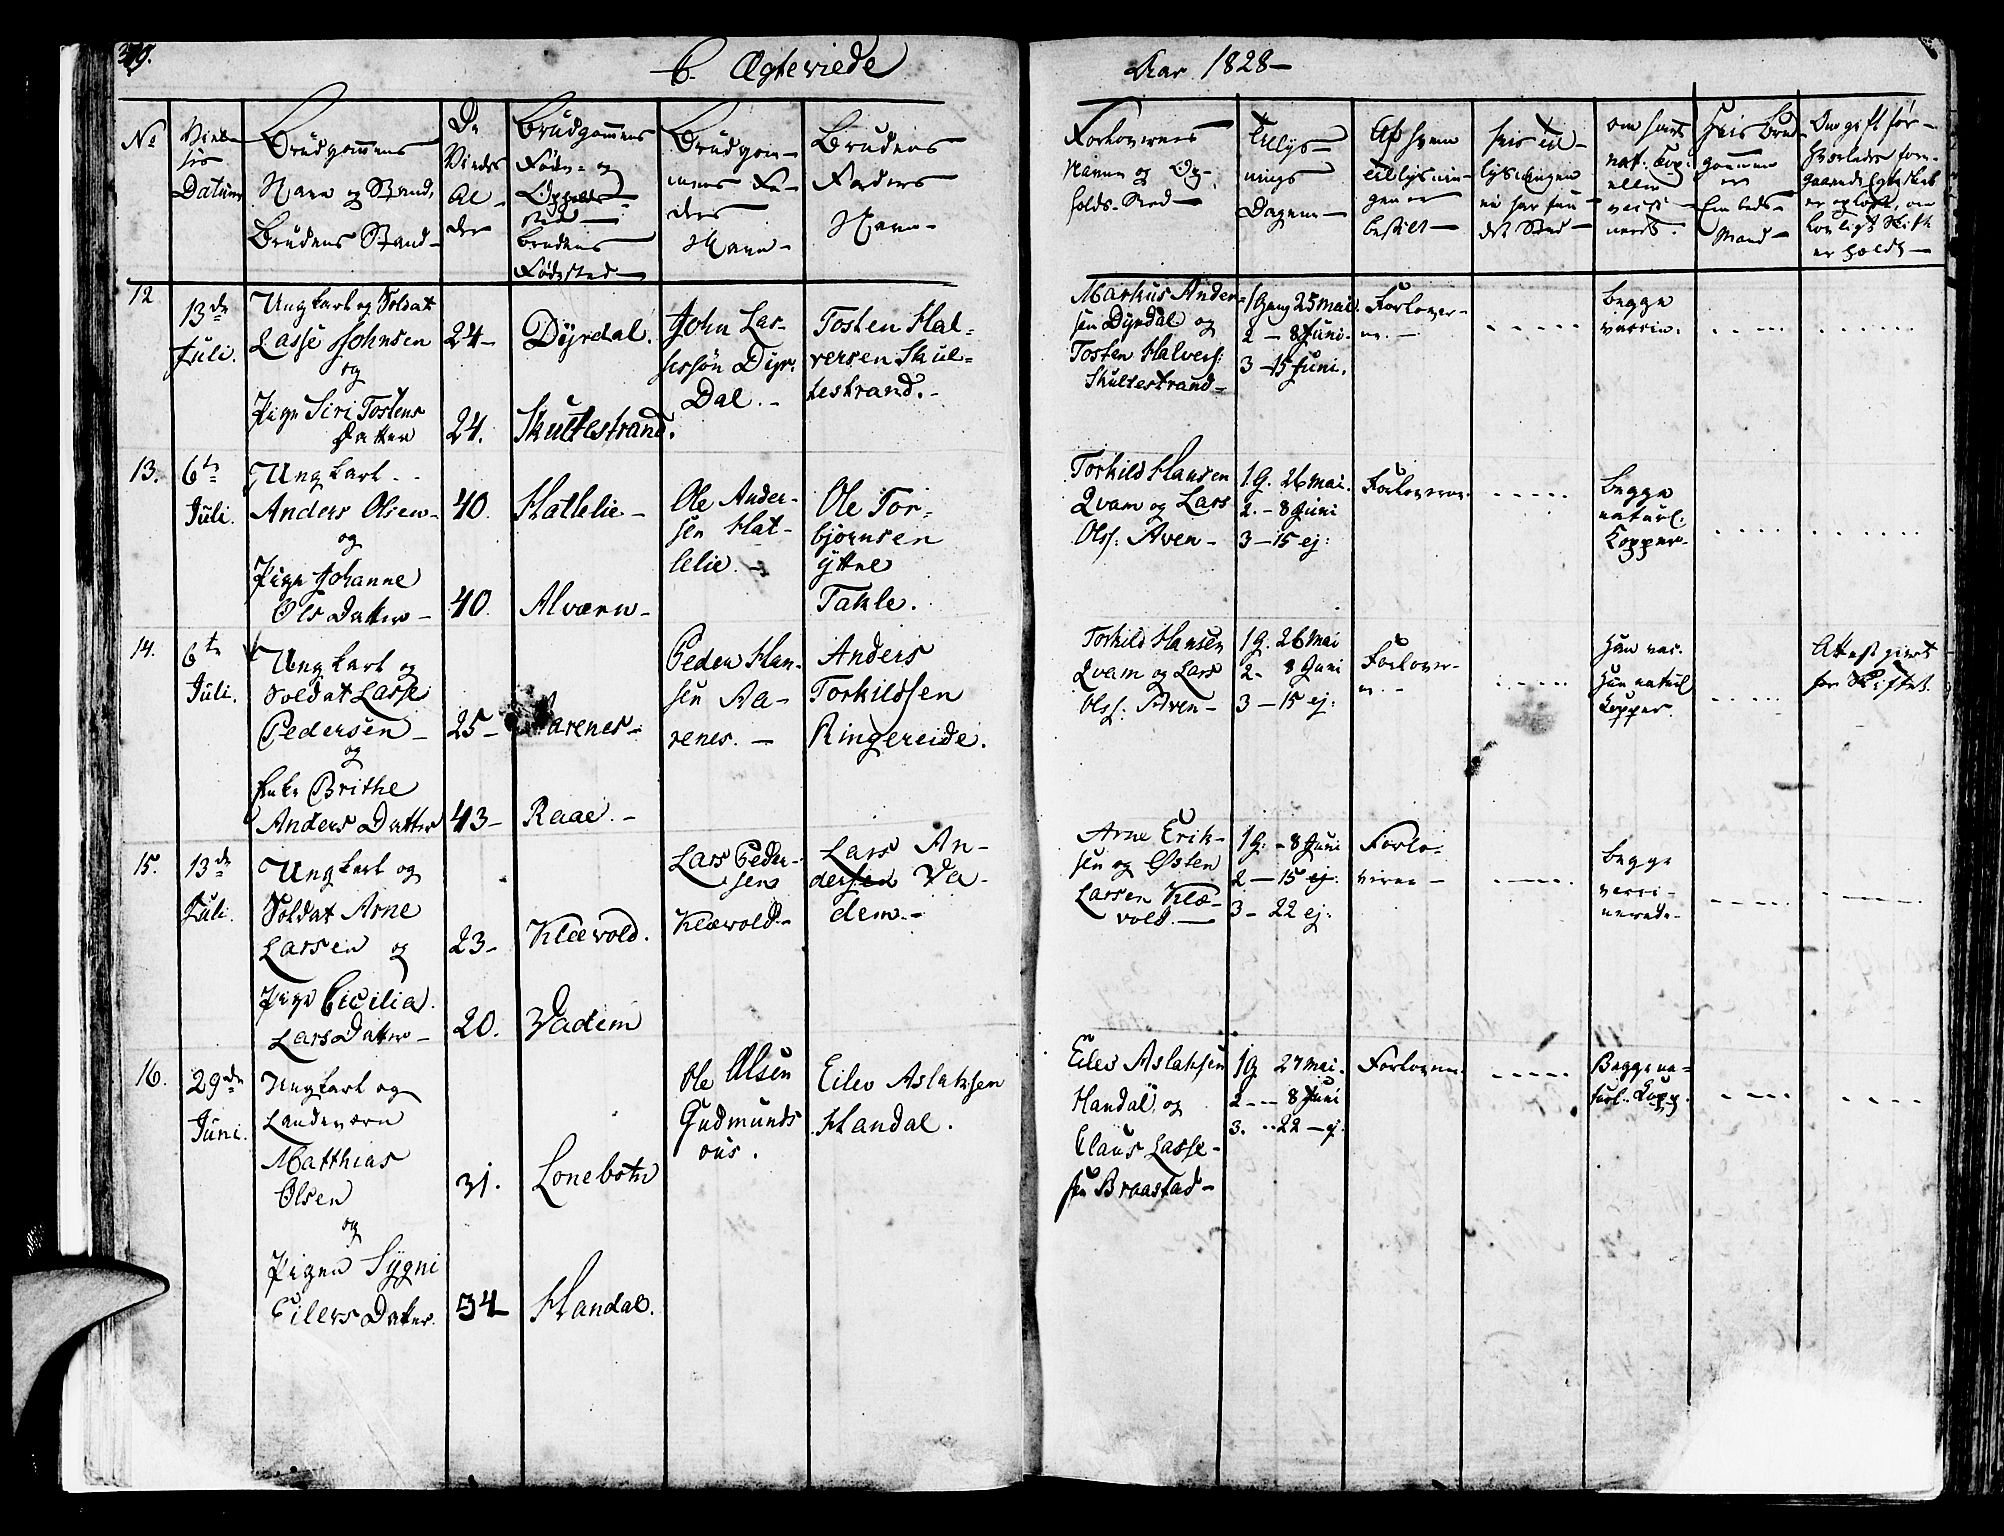 C. Ægteviede
Aar 1828
No
Vielsis
Datum
Brudgommens
Navn og Stand,
Brudens Stand
De
Viedes
Al-
der
Brudgommens
Føde- og
Opholds
sted
Brudens
Fødested
Brudgom-
mens Fa-
ders
Navn
Brudens
Faders
Navn
Forlovernes
Navne og Op-
holds-Sted
Tillys-
nings
Dagene
Af hvem
tillysnin-
gen er
bestilt
hvis til-
lysningen
ei har fun-
det Sted
om havt
nat. Kop.
eller
vacci-
nerede.
Hvis Brud-
gommen
er
Em beds-
Mand
Om gift før-
hvorledes fore-
gaaende Egteskab
er opløst, om
lovligt Skifte
er holdt
12
13de
Juli.
Ungkarl og Soldat
Lasse Johnsen
og
Pige Siri Tostens
Datter
24
24.
Dÿrdal.
Skultestrand.
John Las-
sessøn Dyr-
Dal.
Tosten Hal-
versen Skul-
testrand.
Markus Ander-
sen Dyrdal og
Tosten Halvers:
Skultestrand
1gang 25 Mai
2 - 8 Juni
3 - 15 Juni.
Forlover-
ne.
begge
vaccin.
13.
6te
Juli.
Ungkarl
Anders Olsen
og
Pige Johanne
Ols Datter
40.
40.
Hatlelie
Alværn
Ole Ander-
sen Hat-
lelie.
Ole Tor-
bjørnsen
ÿttre
Takle.
Torkild Hansen
Qvam og Lars
Ols: Aven
1g. 26 Mai.
2. - 8 Juni
3 - 15 ej:
Forloverne
begge
naturl.
Kopper
14.
6te
Juli.
Ungkarl og
Soldat Lasse
Pedersen
og
Enke Brithe
Anders Datter
25
43
Aarenes
Raae.
Peder Han-
sen Aa-
renes.
Anders
Torkildsen
Ringereide.
Torkild Hansen
Qvam og Lars
Ols: Aven
1g. 26 Mai
2 - 8 Juni
3 - 15 ej:
Forlover-
ne
Han vac.
Hun naturl
Kopper.
Attest givet
for Skiftet.
15.
13de
Juli.
Ungkarl og
Soldat Arne
Larsen og
Pige Cicilia
Lars Datter
23
20.
Klævold.
Vadem
Lars Peder-
sen
Klævold
Lars An-
dersen Va-
dem.
Arne Erik-
sen og Østen
Larsen Klæ-
vold.
1g. - 8 Juni
2 - 15 ej.
3 - 22 ej:
Forlo-
verne
begge
vacci-
nerede
16.
29de
Juni.
Ungkarl og
Landeværn
Matthias
Olsen
og
Pigen Sygni
Eilers Datter.
31.
34
Lonebotn
Handal.
Ole Olsen
Gudmunds
øus.
Eilev Aslaksen
Handal.
Eilev Aslaksen
Handal, og
Claus Lasse-
sen Braastad
1g 27 Mai.
2 - 8 Juni
3. - 22 - ej.
Forloverne
Begge na-
turl. Kopp.